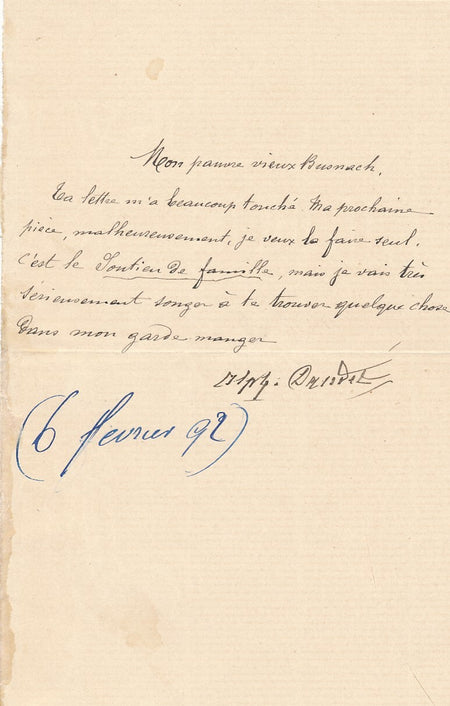 Mon pauvre vieux Busnach,
Ta lettre m'a beaucoup touché. Ma prochaine
pièce, malheureusement, je veux la faire seul.
C'est le Soutien de famille, mais je vais très
sérieusement songer à te trouver quelque chose
dans mon garde manger
Alph. Daudet
(6 fevrier 92)